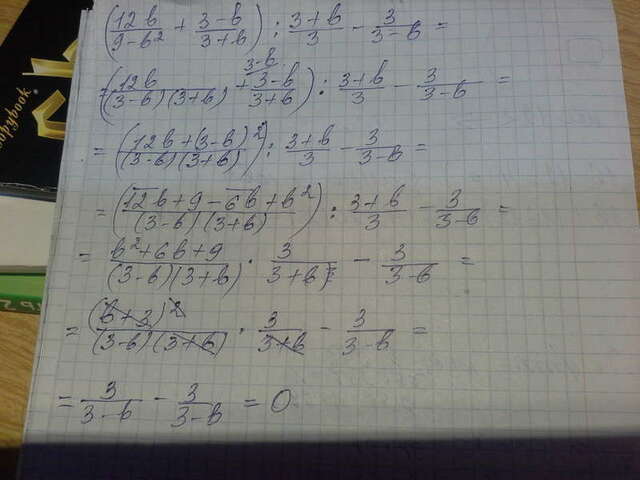 (12b/(9-b²) + (3-b)/(3+b)) : (3+b)/3 - 3/(3-b) =
= (12b/((3-b)(3+b)) + (3-b)/(3+b) ^(3-b)) : (3+b)/3 - 3/(3-b) =
= ((12b+(3-b)²)/((3-b)(3+b))) : (3+b)/3 - 3/(3-b) =
= ((12b+9-6b+b²)/((3-b)(3+b))) : (3+b)/3 - 3/(3-b) =
= (b²+6b+9)/((3-b)(3+b)) · 3/(3+b) - 3/(3-b) =
= (b+3)²/((3-b)(3+b)) · 3/(3+b) - 3/(3-b) =
= 3/(3-b) - 3/(3-b) = 0
copybook